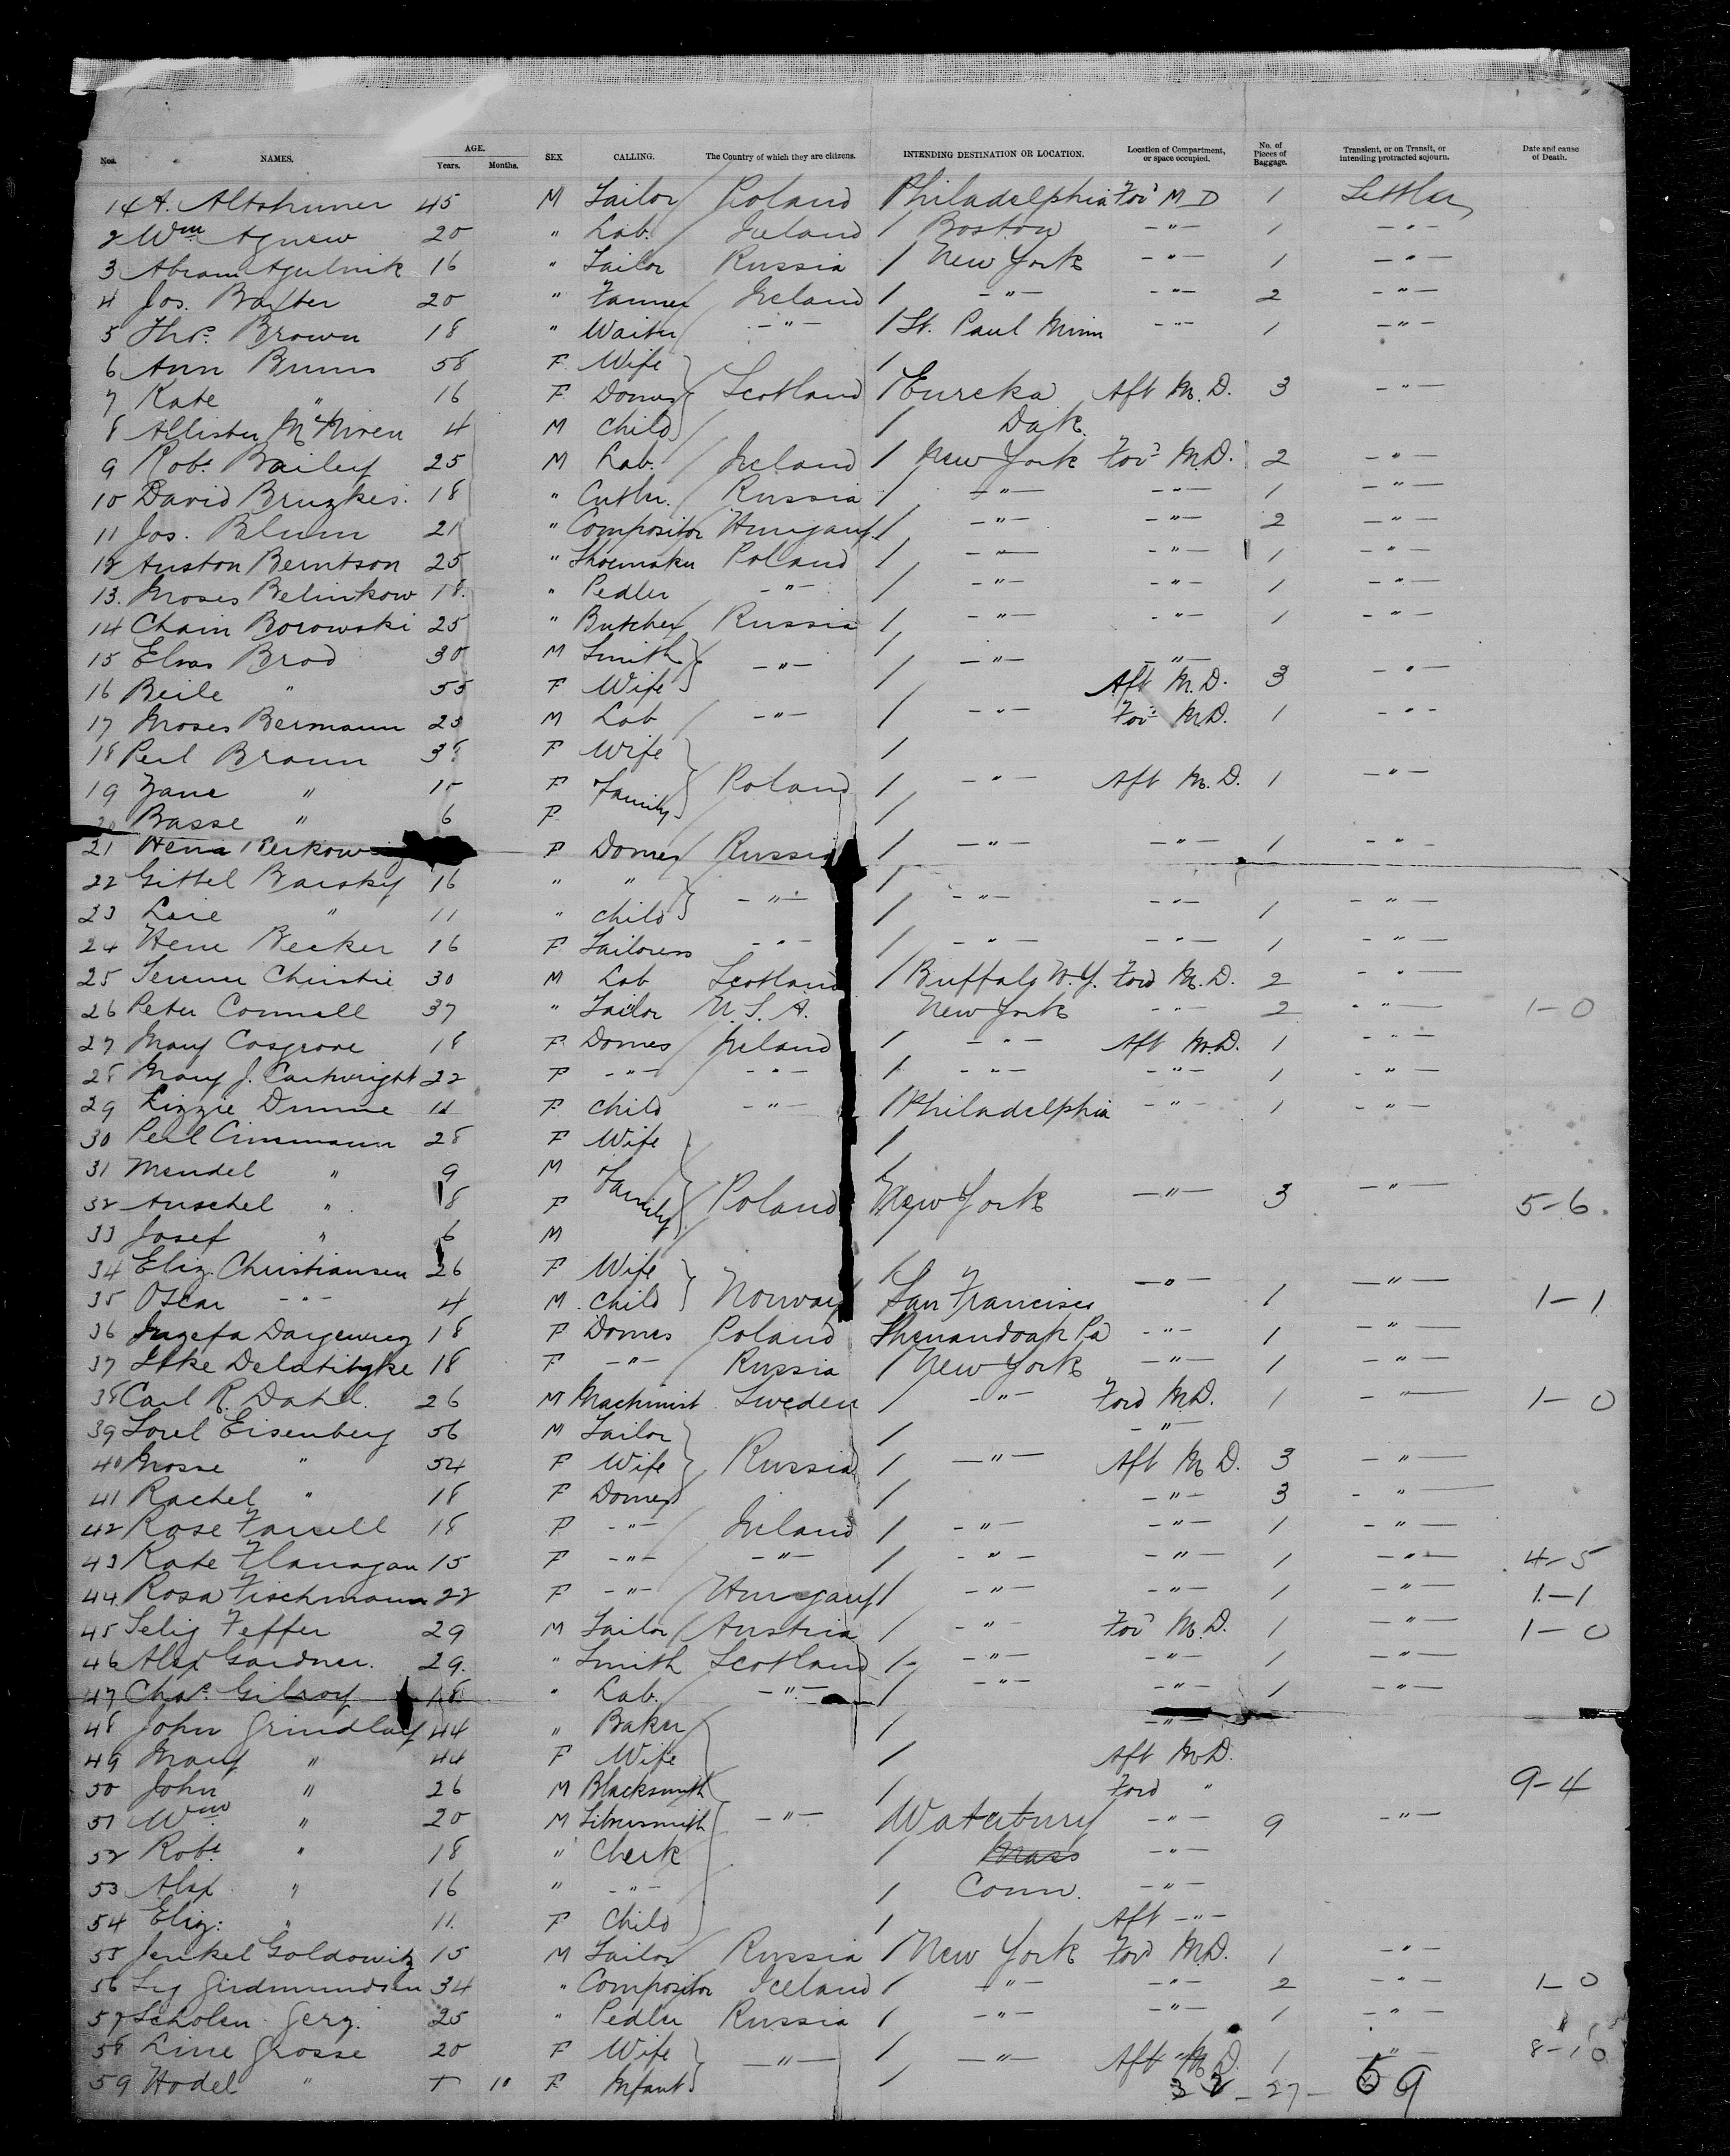 Nos. NAMES. AGE. Years. Months. SEX CALLING. The Country of which they are citizens. INTENDING DESTINATION OR LOCATION. Location of Compartment, or space occupied. No. of Pieces of Baggage. Transient, or on Transit, or intending protracted sojourn. Date and cause of Death.
1 A. Altshuner 45 M Tailor Poland Philadelphia For'd M D 1 Settler
2 Wm Agnew 20 " Lab. Ireland / Boston -"- 1 -"-
3 Abram Agulnik 16 " Tailor Russia / New York -"- 1 -"-
4 Jos. Baxter 20 " Farmer Ireland / -"- -"- 2 -"-
5 Thos. Brown 18 " Waiter -"- / St. Paul Minn -"- 1 -"-
6 Ann Burns 58 F Wife /
7 Kate " 16 F Domes Scotland / Eureka Aft M.D. 3 -"-
8 Allister McNiven 4 M Child / Dak.
9 Robt. Bailey 25 M Lab. Ireland / New York For'd M.D. 2 -"-
10 David Bruzkes 18 " Cutler. Russia / -"- -"- 1 -"-
11 Jos. Blum 21 " Compositor Hungary / -"- -"- 2 -"-
12 Auston Berntson 25 " Shoemaker Poland / -"- -"- 1 -"-
13. Moses Belinkow 18. " Pedler -"- / -"- -"- 1 -"-
14 Chaim Borowski 25 " Butcher Russia / -"- -"- 1 -"-
15 Elias Brod 30 M Smith -"- / -"- -"-
16 Beile " 55 F Wife / Aft M.D. 3 -"-
17 Moses Bermann 25 M Lab -"- / -"- For'd M.D. 1 -"-
18 Perl Braun 38 F Wife /
19 Zane " 10 F Family Poland / -"- Aft M.D. 1 -"-
20 Basse " 6 F /
21 Hena F Domes Russia / -"- -"- 1 -"-
22 Gittel Barsky 16 " " -"- / -"- -"-
23 Leie " 11 " Child / 1 -"-
24 Hene Becker 16 F Tailoress -"- / -"- -"- 1 -"-
25 Christie 30 M Lab Scotland / Buffalo N.Y. Ford M.D. 2 -"-
26 Peter Connell 37 " Tailor U.S.A. New York -"- 2 -"- 1-0
27 Mary Cosgrove 18 F Domes Ireland / -"- Aft M.D. 1 -"-
28 Mary J. Cartwright 22 F -"- -"- / -"- -"- 1 -"-
29 Lizzie Dunne 11 F Child -"- / Philadelphia -"- 1 -"-
30 Perl Cinsmann 28 F Wife /
31 Mendel " 9 M /
32 Anschel " 8 F Family Poland New York -"- 3 -"- 5-6.
33 Josef " 6 M /
34 Eliz. Christiansen 26 F Wife /
35 Oscar -"- 4 M. Child Norway San Francisco -"- 1 -"- 1-1
36 18 F Domes Poland Shenandoah Pa -"- 1 -"-
37 Itke 18 F -"- Russia / New York -"- 1 -"-
38 Carl R. Dahl. 26 M Machinist Sweden / -"- Ford M.D. 1 -"- 1-0
39 Sorel Eisenberg 56 M Tailor / -"-
40 Mosse " 54 F Wife Russia / -"- Aft M.D. 3 -"-
41 Rachel " 18 F Domes / -"- 3 -"-
42 Rose Farrell 18 F -"- Ireland / -"- -"- 1 -"-
43 Kate Flanagan 15 F -"- -"- / -"- -"- 1 -"- 4-5
44 Rosa Fischmann 22 F -"- Hungary / -"- -"- 1 -"- 1-1
45 Selig Feffer 29 M Tailor Austria / -"- For'd M.D. 1 -"- 1-0
46 Alex Gardner. 29. " Smith Scotland / -"- -"- 1 -"-
47 Chas. Gilroy 18 " Lab. -"- / -"- -"- 1 -"-
48 John Grindlay 44 " Baker / -"-
49 Mary " 44 F Wife / Aft M.D.
50 John " 26 M Blacksmith / Ford " 9-4
51 Wm " 20 M Silversmith -"- Waterbury -"- 9 -"-
52 Robt " 18 " Clerk / Mass -"-
53 Alex " 16 " -"- / Conn. -"-
54 Eliz: " 11. F Child / Aft -"-
55 Jenkel Goldowitz 15 M Tailor Russia / New York Ford M.D. 1 -"-
56 Sig Gudmundsen 34 " Compositor Iceland / -"- -"- 2 -"- 1-0
57 Scholem Gerz. 25 " Pedler Russia / -"- -"- 1 -"-
58 Line Grosse 20 F Wife -"- / -"- Aft M.D. 1 -"- 8-10
59 Hodel " 10 F Infant / 32 - 27 - 59